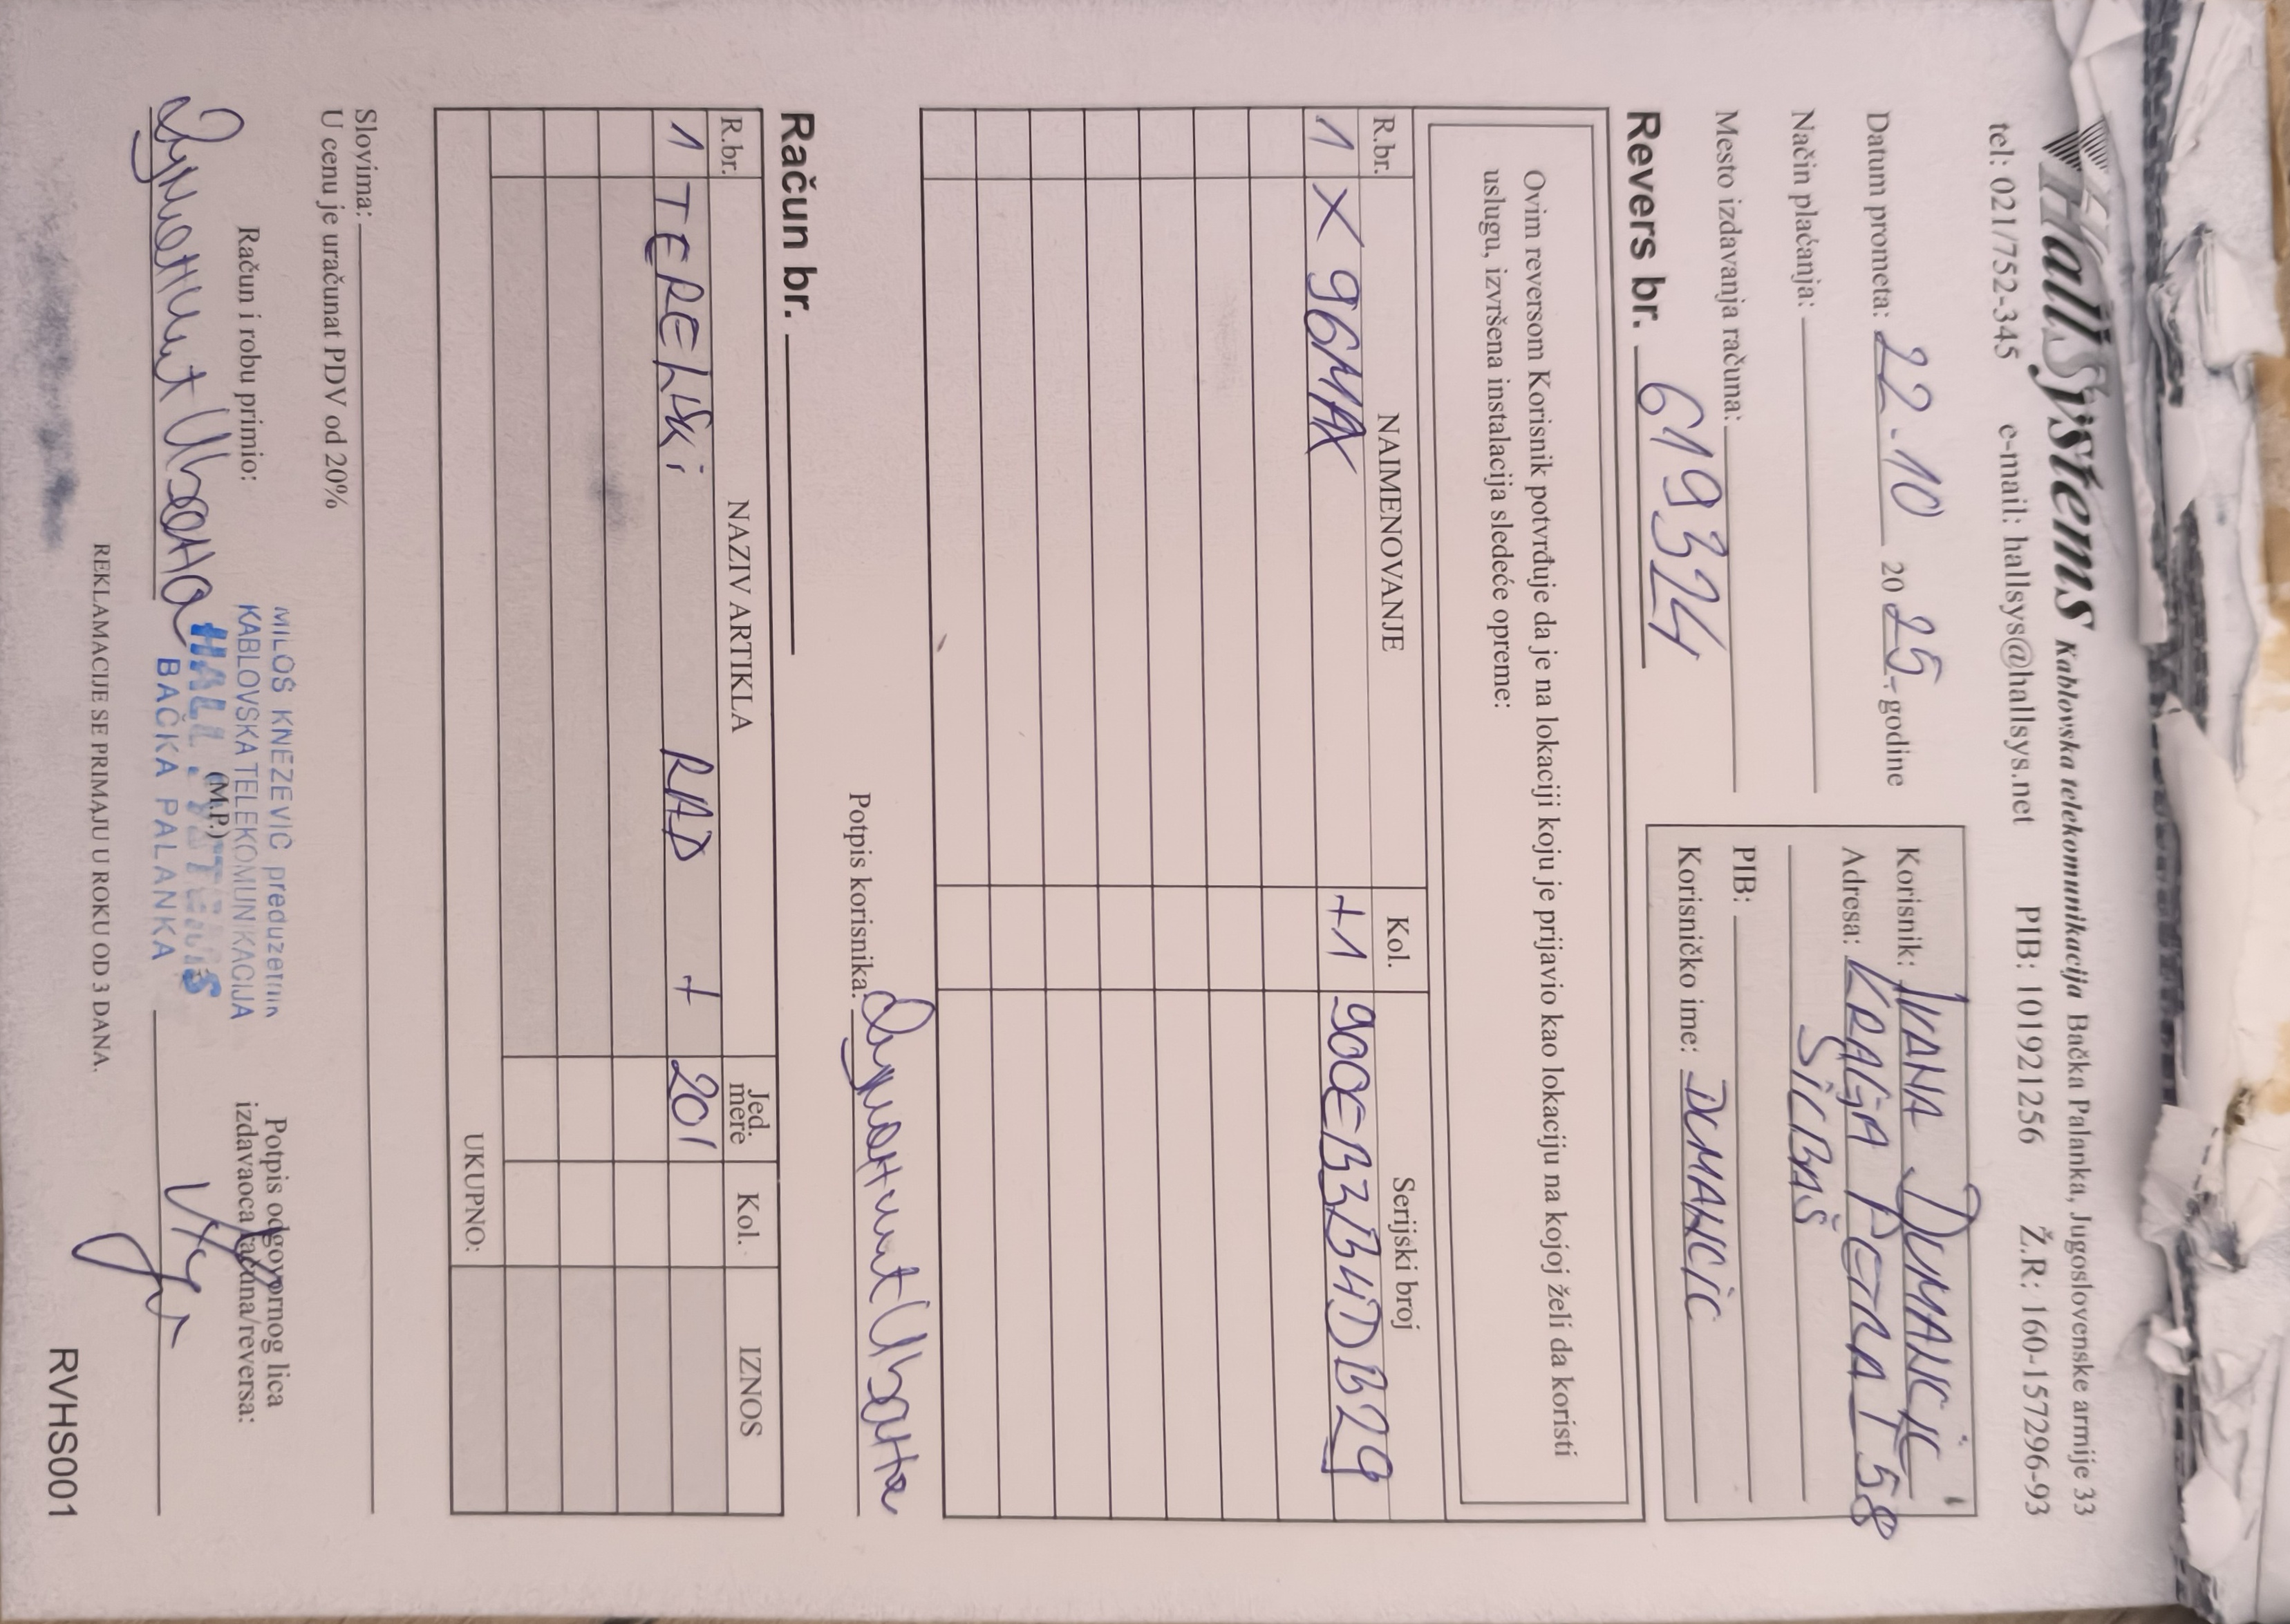 HallSystems Kablovska telekomunikacija Bačka Palanka, Jugoslovenske armije 33
tel: 021/752-345 e-mail: hallsys@hallsys.net PIB: 101921256 Ž.R: 160-157296-93
Datum prometa: 22.10 2025. godine
Način plaćanja:
Mesto izdavanja računa:
Korisnik: IVANA DUMANČIĆ
Adresa: KRALJA PETRA I 58
SILBAŠ
PIB:
Korisničko ime: DUMANČIĆ
Revers br. 619324
Ovim reversom Korisnik potvrđuje da je na lokaciji koju je prijavio kao lokaciju na kojoj želi da koristi
uslugu, izvršena instalacija sledeće opreme:
R.br. NAIMENOVANJE Kol. Serijski broj
1 X96MAX +1 900EB3B4DB29
Potpis korisnika: Думанчић Ивана
Račun br.
R.br. NAZIV ARTIKLA Jed. mere Kol. IZNOS
1 TERENSKI RAD + 201
UKUPNO:
Slovima:
U cenu je uračunat PDV od 20%
Račun i robu primio:
Думанчић Ивана
MILOŠ KNEŽEVIĆ preduzetnik
KABLOVSKA TELEKOMUNIKACIJA
HALL SYSTEMS
BAČKA PALANKA
(M.P.)
Potpis odgovornog lica
izdavaoca računa/reversa:
REKLAMACIJE SE PRIMAJU U ROKU OD 3 DANA.
RVHS001